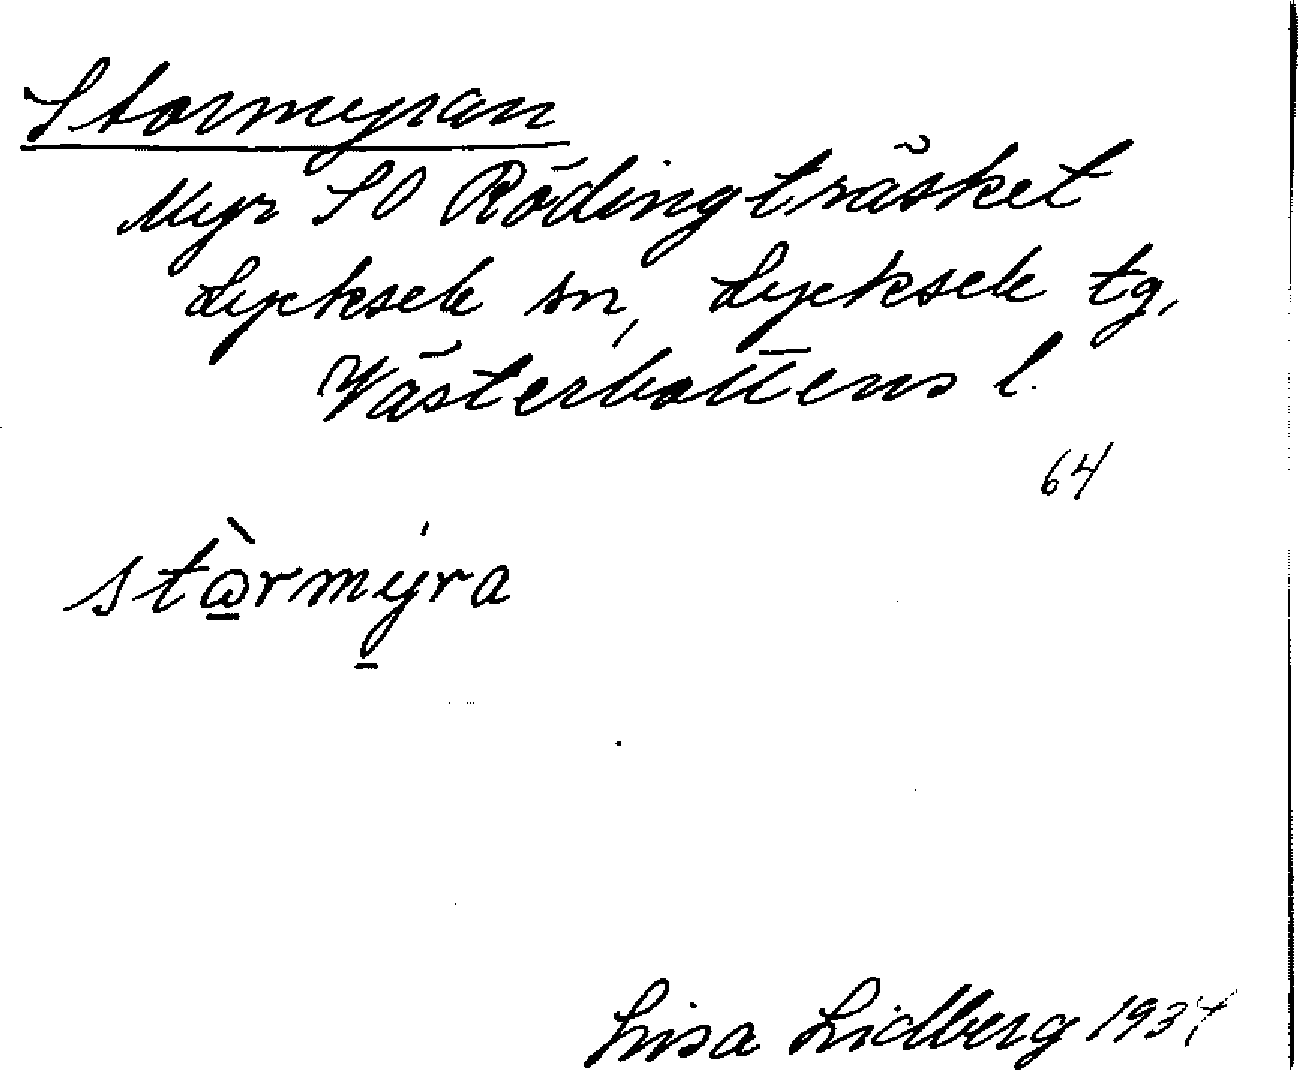 Stormyran
Myr SO Rödingträsket
Lycksele sn, Lycksele tg,
Västerbottens l.
64
stòrmýra
Lisa Lidberg 1934